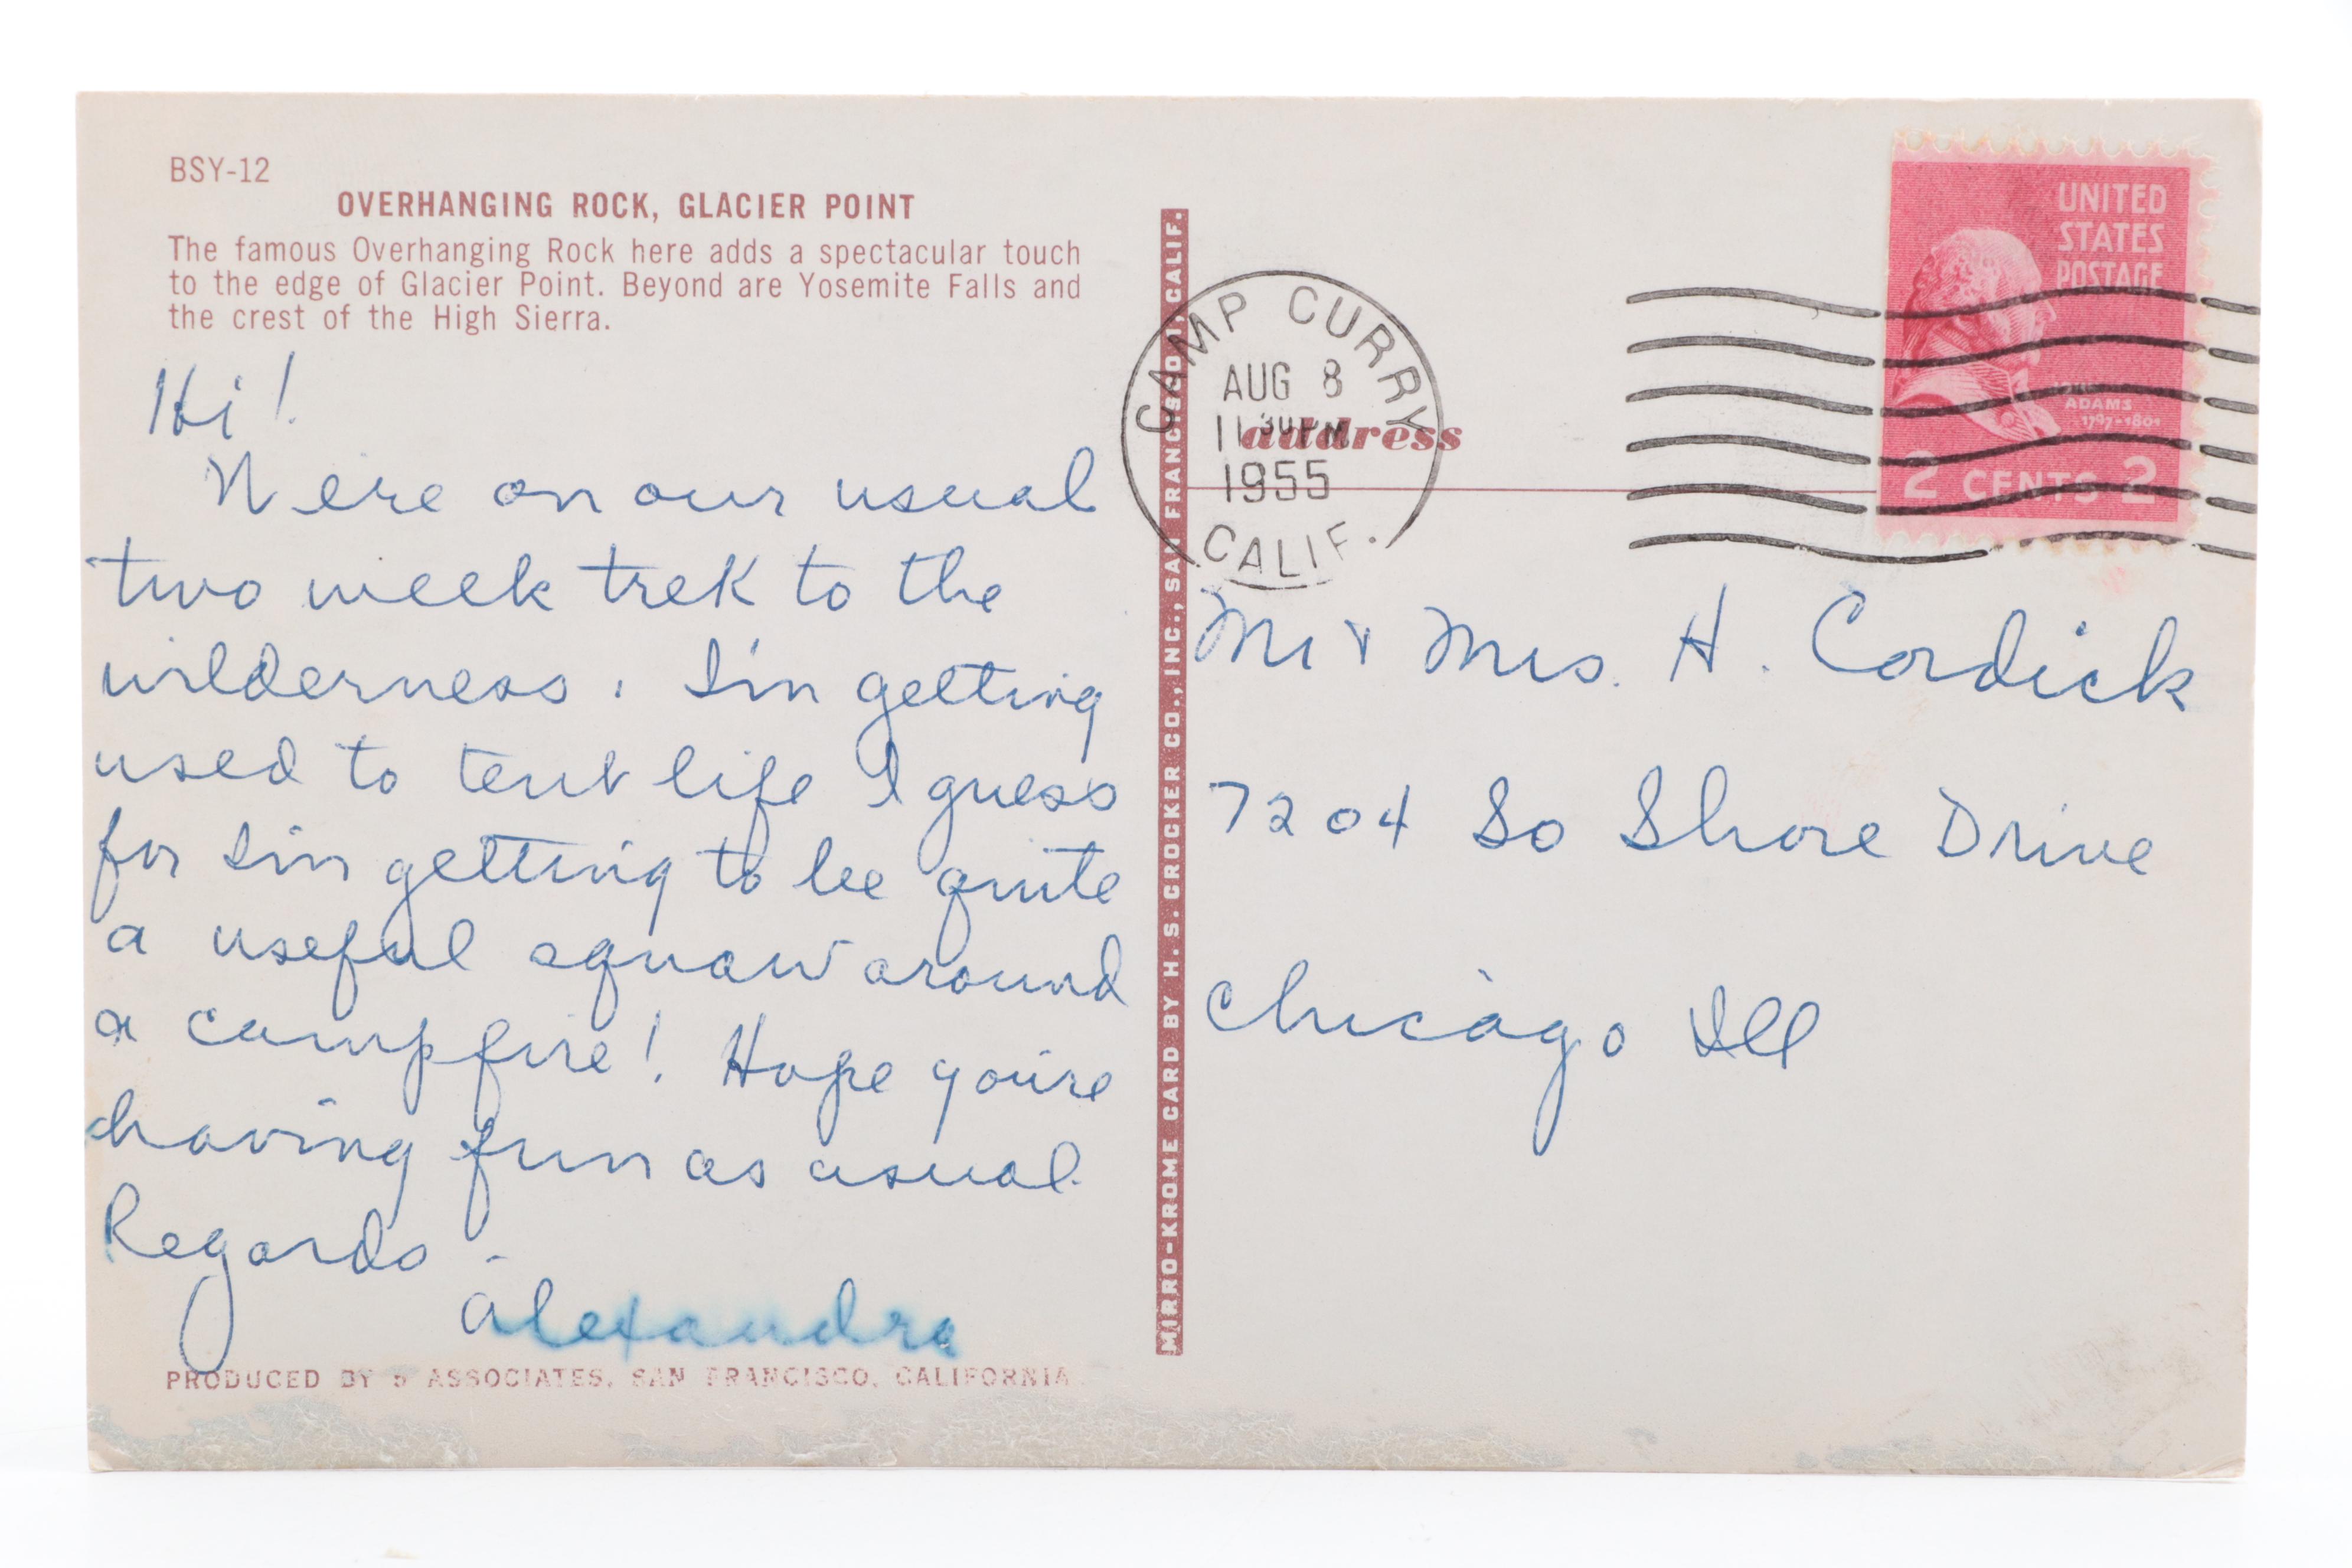 BSY-12
OVERHANGING ROCK, GLACIER POINT
The famous Overhanging Rock here adds a spectacular touch
to the edge of Glacier Point. Beyond are Yosemite Falls and
the crest of the High Sierra.
Hi!
We're on our usual
two week trek to the
wilderness. I'm getting
used to tent life I guess
for I'm getting to be quite
a useful squaw around
a campfire! Hope you're
having fun as usual.
Regards -
Alexandra
PRODUCED BY 5 ASSOCIATES, SAN FRANCISCO, CALIFORNIA
MIRRO-KROME CARD BY H. S. CROCKER CO., INC., SAN FRANCISCO 1, CALIF.
CAMP CURRY
AUG 8
11 30 PM
1955
CALIF.
address
UNITED
STATES
POSTAGE
ADAMS
1797-1801
2 CENTS 2
Mr & Mrs. H. Cordick
7204 So Shore Drive
Chicago Ill